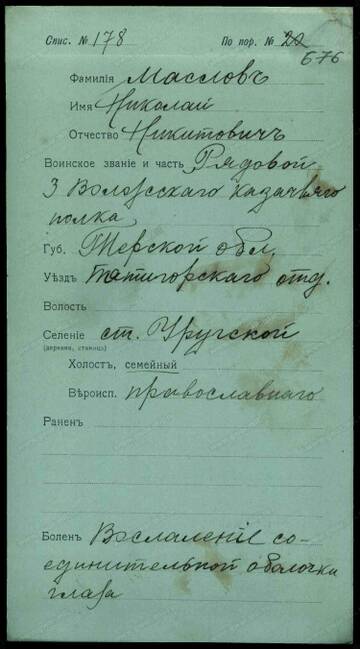 Спис. № 178 По пор. № 20
676
Фамилія Масловъ
Имя Николай
Отчество Никитовичъ
Воинское званіе и часть Рядовой
3 Волгсскаго казачьяго
полка
Губ. Терской обл.
Уѣздъ Пятигорскаго отд.
Волость
Селеніе ст. Уругской
(деревня, станица)
Холостъ, семейный
Вѣроисп. православнаго
Раненъ
Боленъ Воспаленіе со-
единительной оболочки
глаза